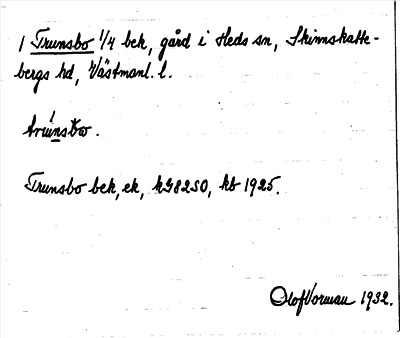 1 Trunsbo 1/4 bek, gård i Heds sn, Skinnskatte-
bergs hd, Västmanl. l.
Trunsbo bek, ek, kG82SO, kb 1925.
Olof Vorman 1932.